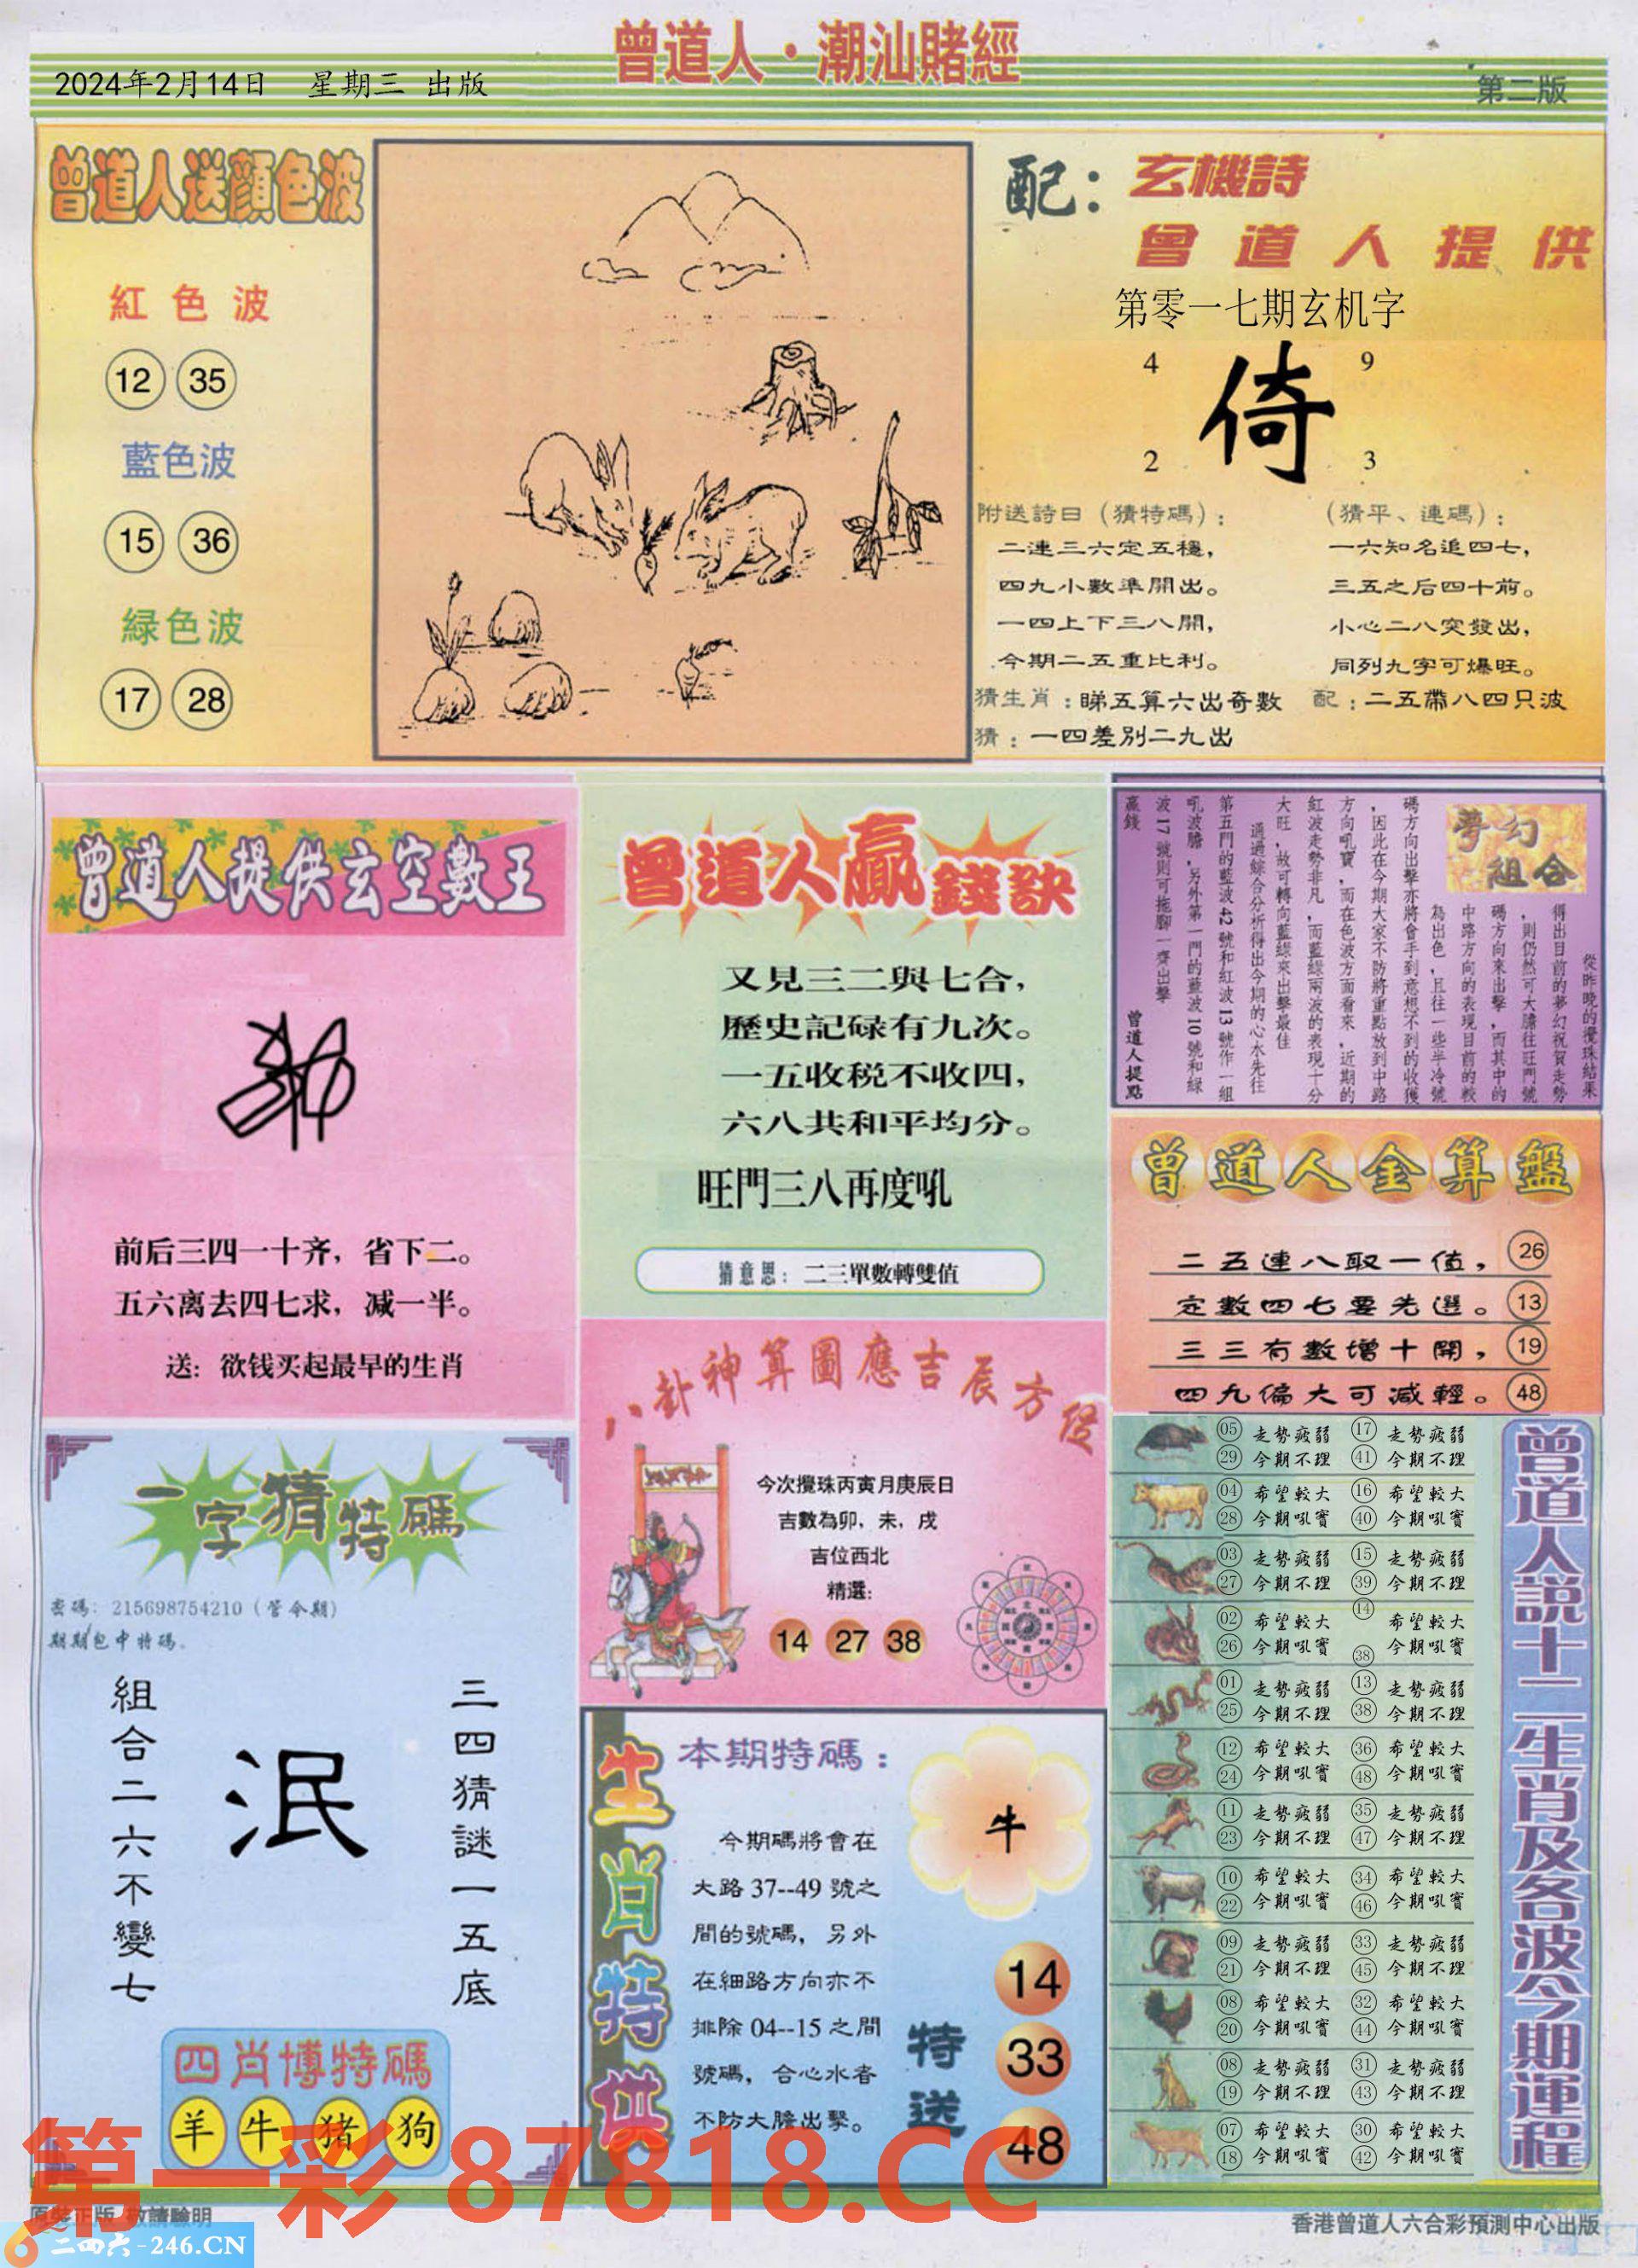 曾道人·潮汕賭經
2024年2月14日 星期三 出版
第二版
曾道人送顏色波
紅色波
12 35
藍色波
15 36
緑色波
17 28
配：玄機詩
曾道人提供
第零一七期玄机字
4 9
倚
2 3
附送詩曰（猜特碼）：
二連三六定五穩，
四九小數準開出。
一四上下三八開，
今期二五重比利。
（猜平、連碼）：
一六知名追四七，
三五之后四十前。
小心二八突發出，
同列九字可爆旺。
猜生肖：睇五算六出奇數
配：二五帶八四只波
猜：一四差別二九出
曾道人提供玄空數王
前后三四一十齐，省下二。
五六离去四七求，减一半。
送：欲钱买起最早的生肖
曾道人贏錢訣
又見三二與七合，
歷史記碌有九次。
一五收税不收四，
六八共和平均分。
旺門三八再度吼
猜意思：二三單數轉雙值
夢幻組合
從昨晚的攪珠結果
得出目前的夢幻祝賀走勢
，則仍然可大膽往旺門號
碼方向來出擊，而其中的
中路方向的表現目前的較
為出色，且往一些半冷號
碼方向出擊亦將會手到意想不到的收獲
，因此在今期大家不防將重點放到中路
方向吼寶，而在色波方面看來，近期的
紅波走勢非凡，而藍緑兩波的表現十分
大旺，故可轉向藍緑來出擊最佳
通過綜合分析得出今期的心水先往
第五門的藍波42號和紅波13號作一組
吼波膽，另外第一門的藍波10號和緑
波17號則可拖腳一齊出擊
贏錢
曾道人提點
曾道人金算盤
二五連八取一值， 26
定數四七要先選。 13
三三有數增十開， 19
四九偏大可減輕。 48
八卦神算圖應吉辰方位
今次攪珠丙寅月庚辰日
吉數為卯，未，戌
吉位西北
精選：
14 27 38
一字猜特碼
密碼：215698754210（管令期）
期期包中特碼。
三四猜謎一五底
泯
組合二六不變七
四肖博特碼
羊 牛 猪 狗
生肖特供
本期特碼：
牛
今期碼將會在
大路37--49號之
間的號碼，另外
在細路方向亦不
排除04--15之間
號碼，合心水者
不防大膽出擊。
特送
14
33
48
曾道人說十二生肖及各波今期運程
05 走勢疲弱 17 走勢疲弱
29 今期不理 41 今期不理
04 希望較大 16 希望較大
28 今期吼實 40 今期吼實
03 走勢疲弱 15 走勢疲弱
27 今期不理 39 今期不理
02 希望較大 14 希望較大
26 今期吼實 38 今期吼實
01 走勢疲弱 13 走勢疲弱
25 今期不理 38 今期不理
12 希望較大 36 希望較大
24 今期吼實 48 今期吼實
11 走勢疲弱 35 走勢疲弱
23 今期不理 47 今期不理
10 希望較大 34 希望較大
22 今期吼實 46 今期吼實
09 走勢疲弱 33 走勢疲弱
21 今期不理 45 今期不理
08 希望較大 32 希望較大
20 今期吼實 44 今期吼實
08 走勢疲弱 31 走勢疲弱
19 今期不理 43 今期不理
07 希望較大 30 希望較大
18 今期吼實 42 今期吼實
第一彩 87818.CC
原裝正版 敬請驗明
二四六-246.CN
香港曾道人六合彩預測中心出版